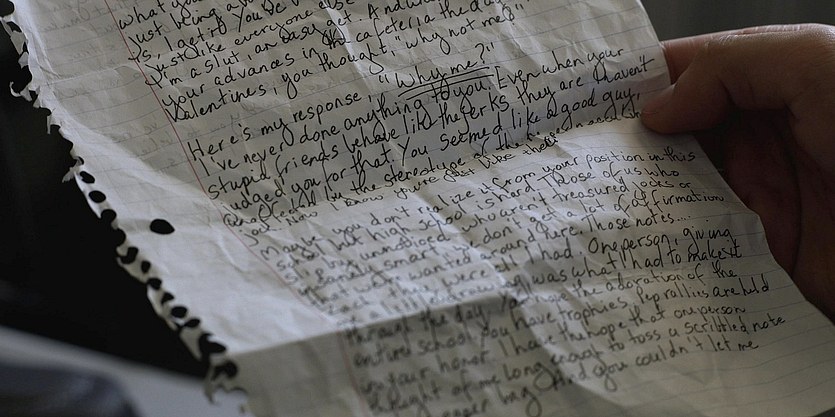 what you
just being a
is, I get it. You've
just like everyone else
I'm a slut, an easy get. And
your advances in the cafeteria the day
Valentines, you thought, "why not me?"
Here's my response, "Why me?"
I've never done anything to you. Even when your
stupid friends behave like the jerks they are I haven't
judged you for that. You seemed like a good guy,
the stereotype of the
know you're just like them.
Maybe you don't realize it from your position in this
school but high school is hard. Those of us who
go unnoticed, who aren't treasured jocks or
insanely smart we don't get a lot of affirmation
that we're wanted around here. Those notes....
were all I had. One person, giving
was what I had to make it
through the day. You have the adoration of the
entire school. You have trophies, Pep rallies are held
in your honor. I have the hope that one person
thought of me long enough to toss a scribbled note
paper bag. And you couldn't let me